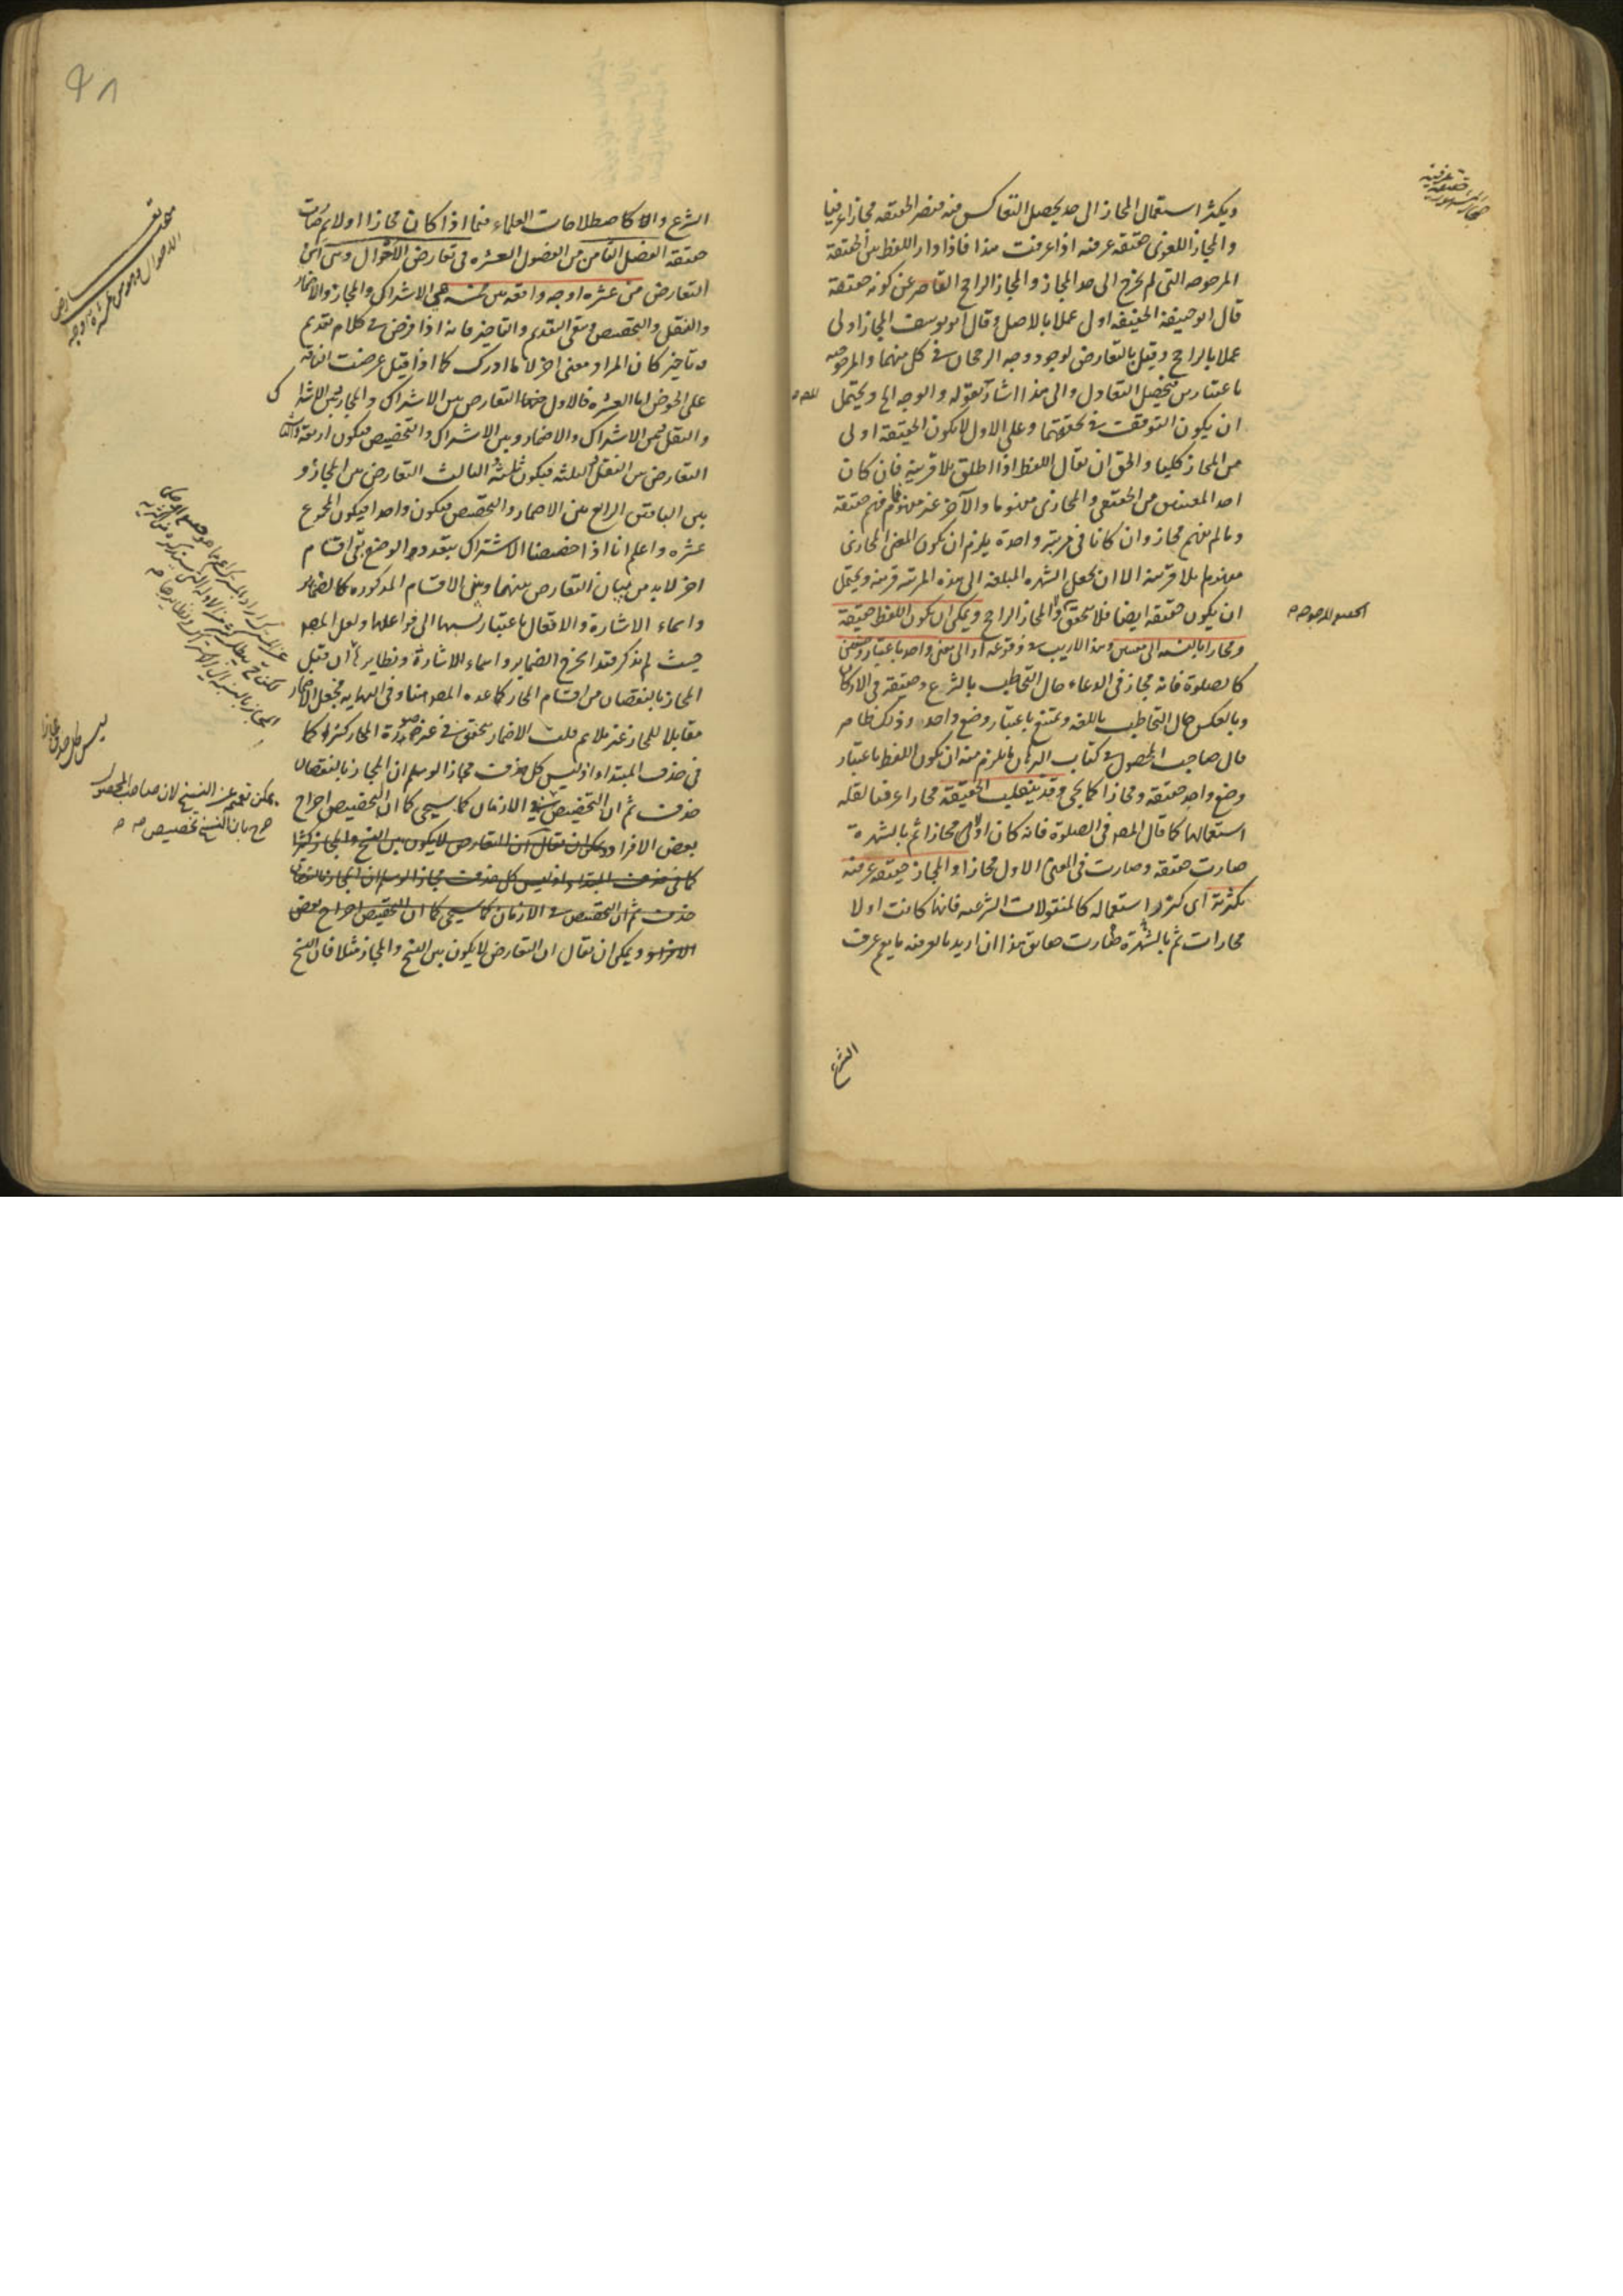 ويكثر استعمال المجاز الى حد يحصل التعاكس فيه فتصير الحقيقة مجازا عرفيا
والمجاز اللغوى حقيقة عرفية اذا عرفت هذا فاذا دار اللفظ بين الحقيقة
المرجوحه التى لم يخرج الى حد المجاز والمجاز الراجح القاصر عن كونه حقيقة
قال ابو حنيفة الحقيقة اولى عملا بالاصل وقال ابو يوسف المجاز اولى
عملا بالراجح وقيل بالتعارض لوجود وجه الرجحان فى كل منهما والمرجوحيه
باعتبارين فيحصل التعادل والى هذا اشار بقوله والوجه الخ ويحتمل
ان يكون التوقف فى تحققهما وعلى الاول لا يكون الحقيقة اولى
من المجاز كليا والحق ان يقال اللفظ اذا اطلق بلا قرينة فان كان
احد المعنيين من الحقيقى والمجازى مفهوما والآخر غير مفهوم فما فهم حقيقة
وما لم يفهم مجاز وان كانا فى مرتبة واحدة يلزم ان يكون المعنى المجازى
مفهوما بلا قرينة الا ان يجعل الشهره المبلغه الى هذه المرتبه قرينه ويحتمل
ان يكون حقيقة ايضا فلا يتحقق المجاز الراجح ويمكن ان يكون اللفظ حقيقة
ومجازا بالنسبه الى معنيين وهذا لا ريب فى وقوعه او الى معنى واحد باعتبار وضعين
كالصلوة فانه مجاز فى الدعاء حال التخاطب بالشرع وحقيقة فى الاركان
وبالعكس حال التخاطب باللغه ويمتنع باعتبار وضع واحد وذلك ظاهر
قال صاحب المحصول فى كتاب البرهان لما يلزم منه ان يكون اللفظ باعتبار
وضع واحد حقيقة ومجازا كما يجى وقد ينقلب الحقيقة مجازا عرفيا لقلة
استعمالها كما قال المصـ فى الصلوة فانه كان اولا مجازا ثم بالشهرة
صارت حقيقة وصارت فى المعنى الاول مجازا والمجاز حقيقة عرفية
بكثرته اى كثرة استعماله كالمنقولات الشرعيه فانها كانت اولا
مجازات ثم بالشهرة صارت حقايق هذا ان اريد بالعرفيه ما يعم عرف
الشرع
الشرع والا كاصطلاحات العلماء فيما اذا كان مجازا اولا ثم صارت
حقيقة الفصل الثامن من الفصول العشره فى تعارض الاحوال وهى اى
التعارض من عشره اوجه واقعه من خمسه هى الاشتراك والمجاز والاضمار
والنقل والتخصيص وبقى التقديم والتاخير فانه اذا فرض فى كلام تقديم
وتاخير كان المراد معنى اخر لا ما ادرك كما اذا قيل عرضت الناقه
على الحوض اما العشره فالاول منها التعارض بين الاشتراك والمجاز بين الاشتراك
والنقل بين الاشتراك والاضمار وبين الاشتراك والتخصيص فيكون اربعة والثانى
التعارض بين النقل والثلثه فيكون ثلثة الثالث التعارض بين المجاز و
بين الباقيين الرابع بين الاضمار والتخصيص فيكون واحدا فيكون المجموع
عشره واعلم انا اذا خصصنا الاشتراك بتعدد الوضع بقى اقسام
اخر لا بد من بيان التعارض بينهما وبين الاقسام المذكوره كالضماير
واسماء الاشارة والافعال باعتبار نسبها الى فواعلها ولعل المصـ
حيث لم يذكر قيدا يخرج الضماير واسماء الاشارة ونظايرها ان قيل
المجاز بالنقصان من اقسام المجاز كما عده المصـ هنا وفى النهايه فجعل الاضمار
مقابلا للمجاز غير ملايم قلت الاضمار يتحقق فى غير صورة المجاز كثيرا كما
فى حذف المبتدا اذ ليس كل حذف مجازا لو سلم ان المجاز بالنقصان
حذف ثم ان التخصيص فى الازمان كما سيجى كما ان التخصيص اخراج
بعض الافراد ويمكن ان يقال ان التعارض لا يكون بين النسخ والمجاز كثيرا
كما فى حذف المبتدا اذ ليس كل حذف مجازا لو سلم ان المجاز بالنقصان
حذف ثم ان التخصيص فى الازمان كما سيجى كما ان التخصيص اخراج بعض
الافراد ويمكن ان يقال ان التعارض لا يكون بين النسخ والمجاز مثلا فان النسخ
يمكن تعميم النسخ لان صاحب المحصول
صرح بان النسخ تخصيص